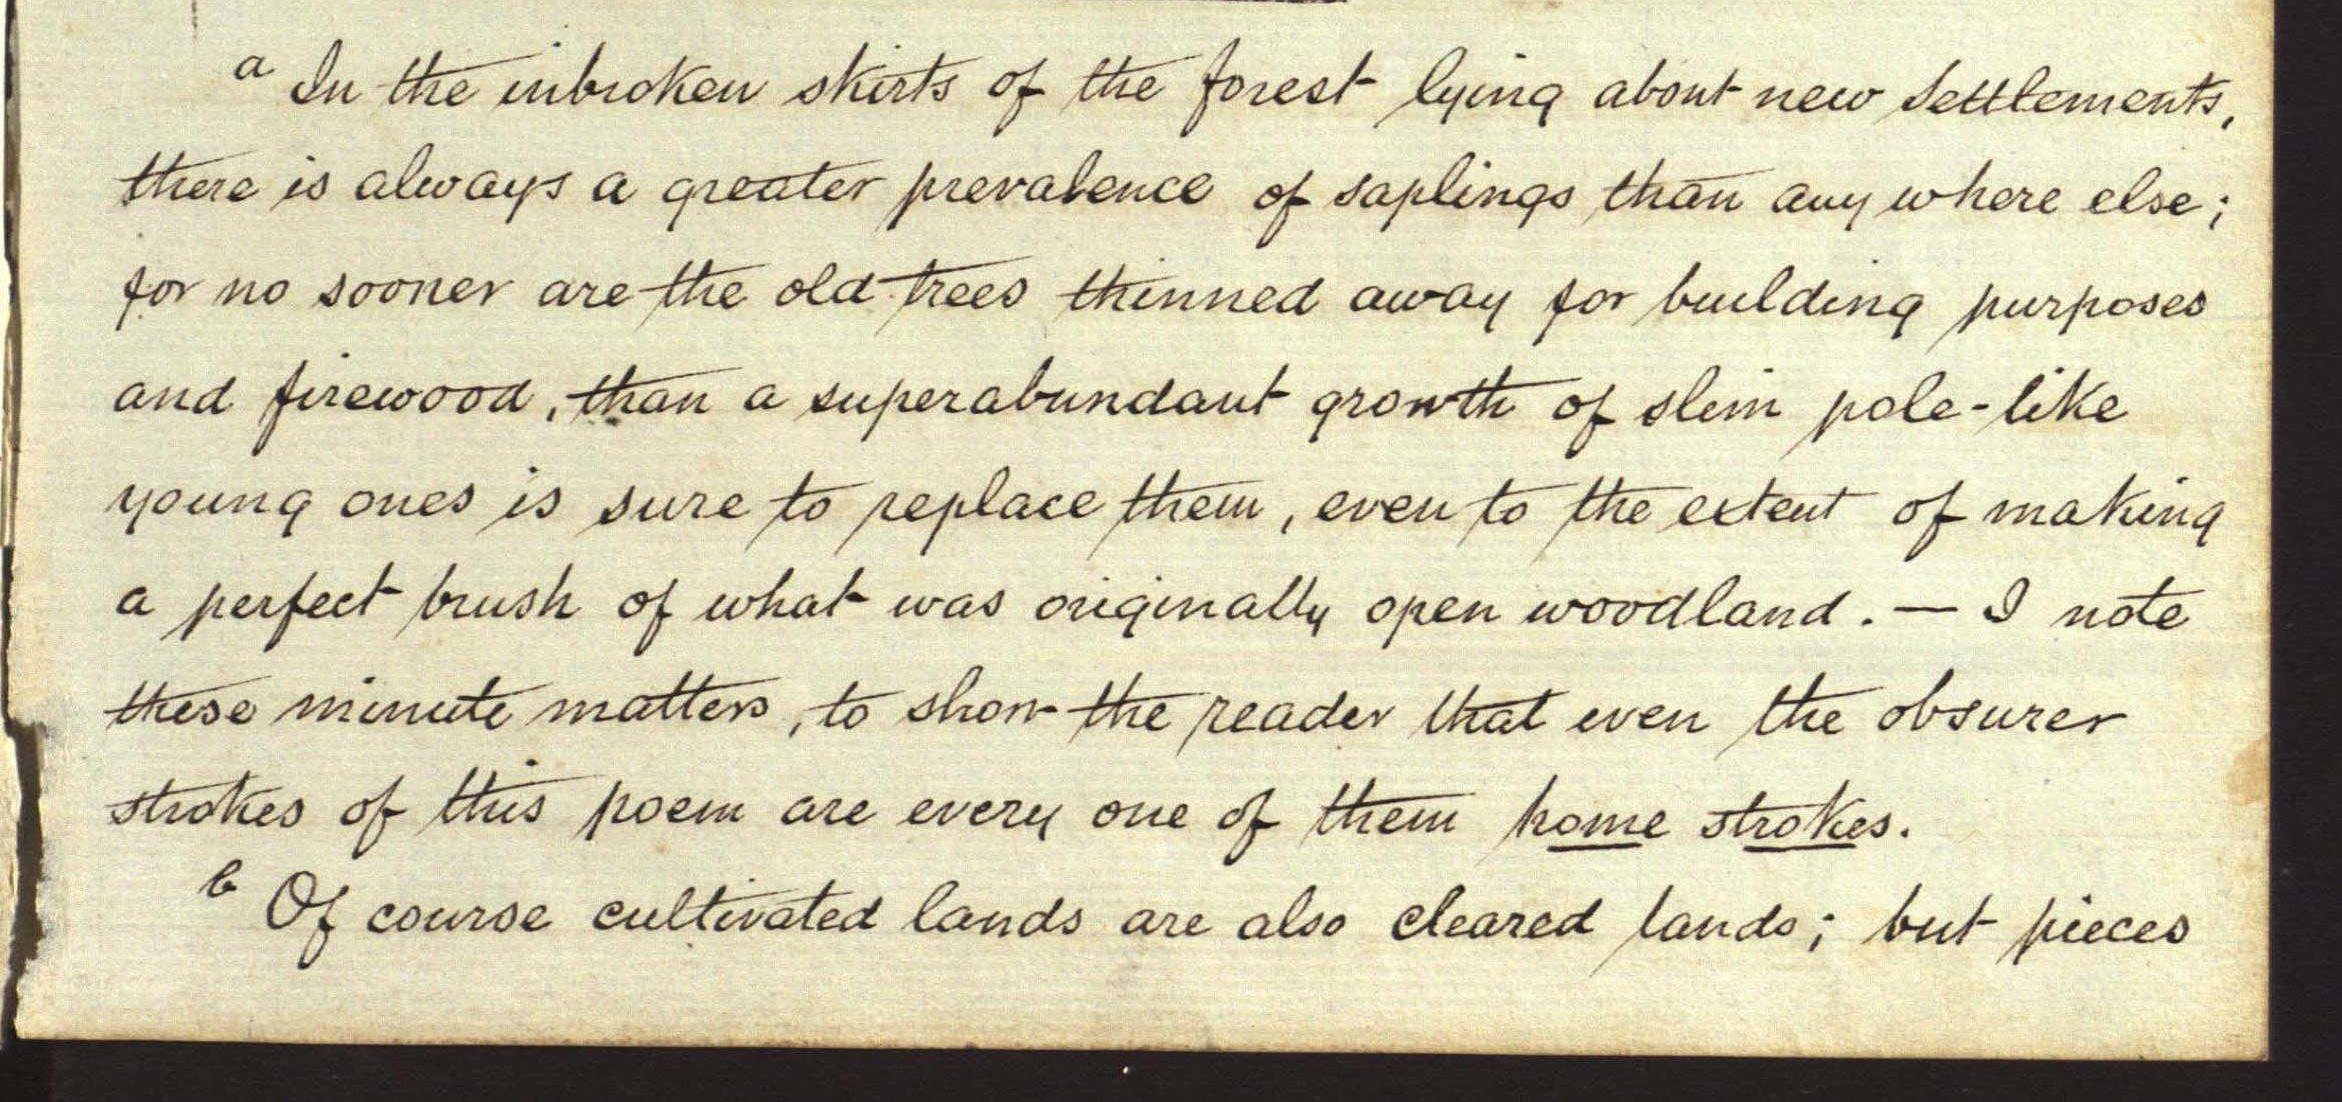 a In the inbroken skirts of the forest lying about new Settlements,
there is always a greater prevalence of saplings than any where else;
for no sooner are the old trees thinned away for building purposes
and firewood, than a superabundant growth of slim pole-like
young ones is sure to replace them, even to the extent of making
a perfect brush of what was originally open woodland. — I note
these minute matters, to show the reader that even the obsurer
strokes of this poem are every one of them home strokes.
b Of course cultivated lands are also cleared lands; but pieces